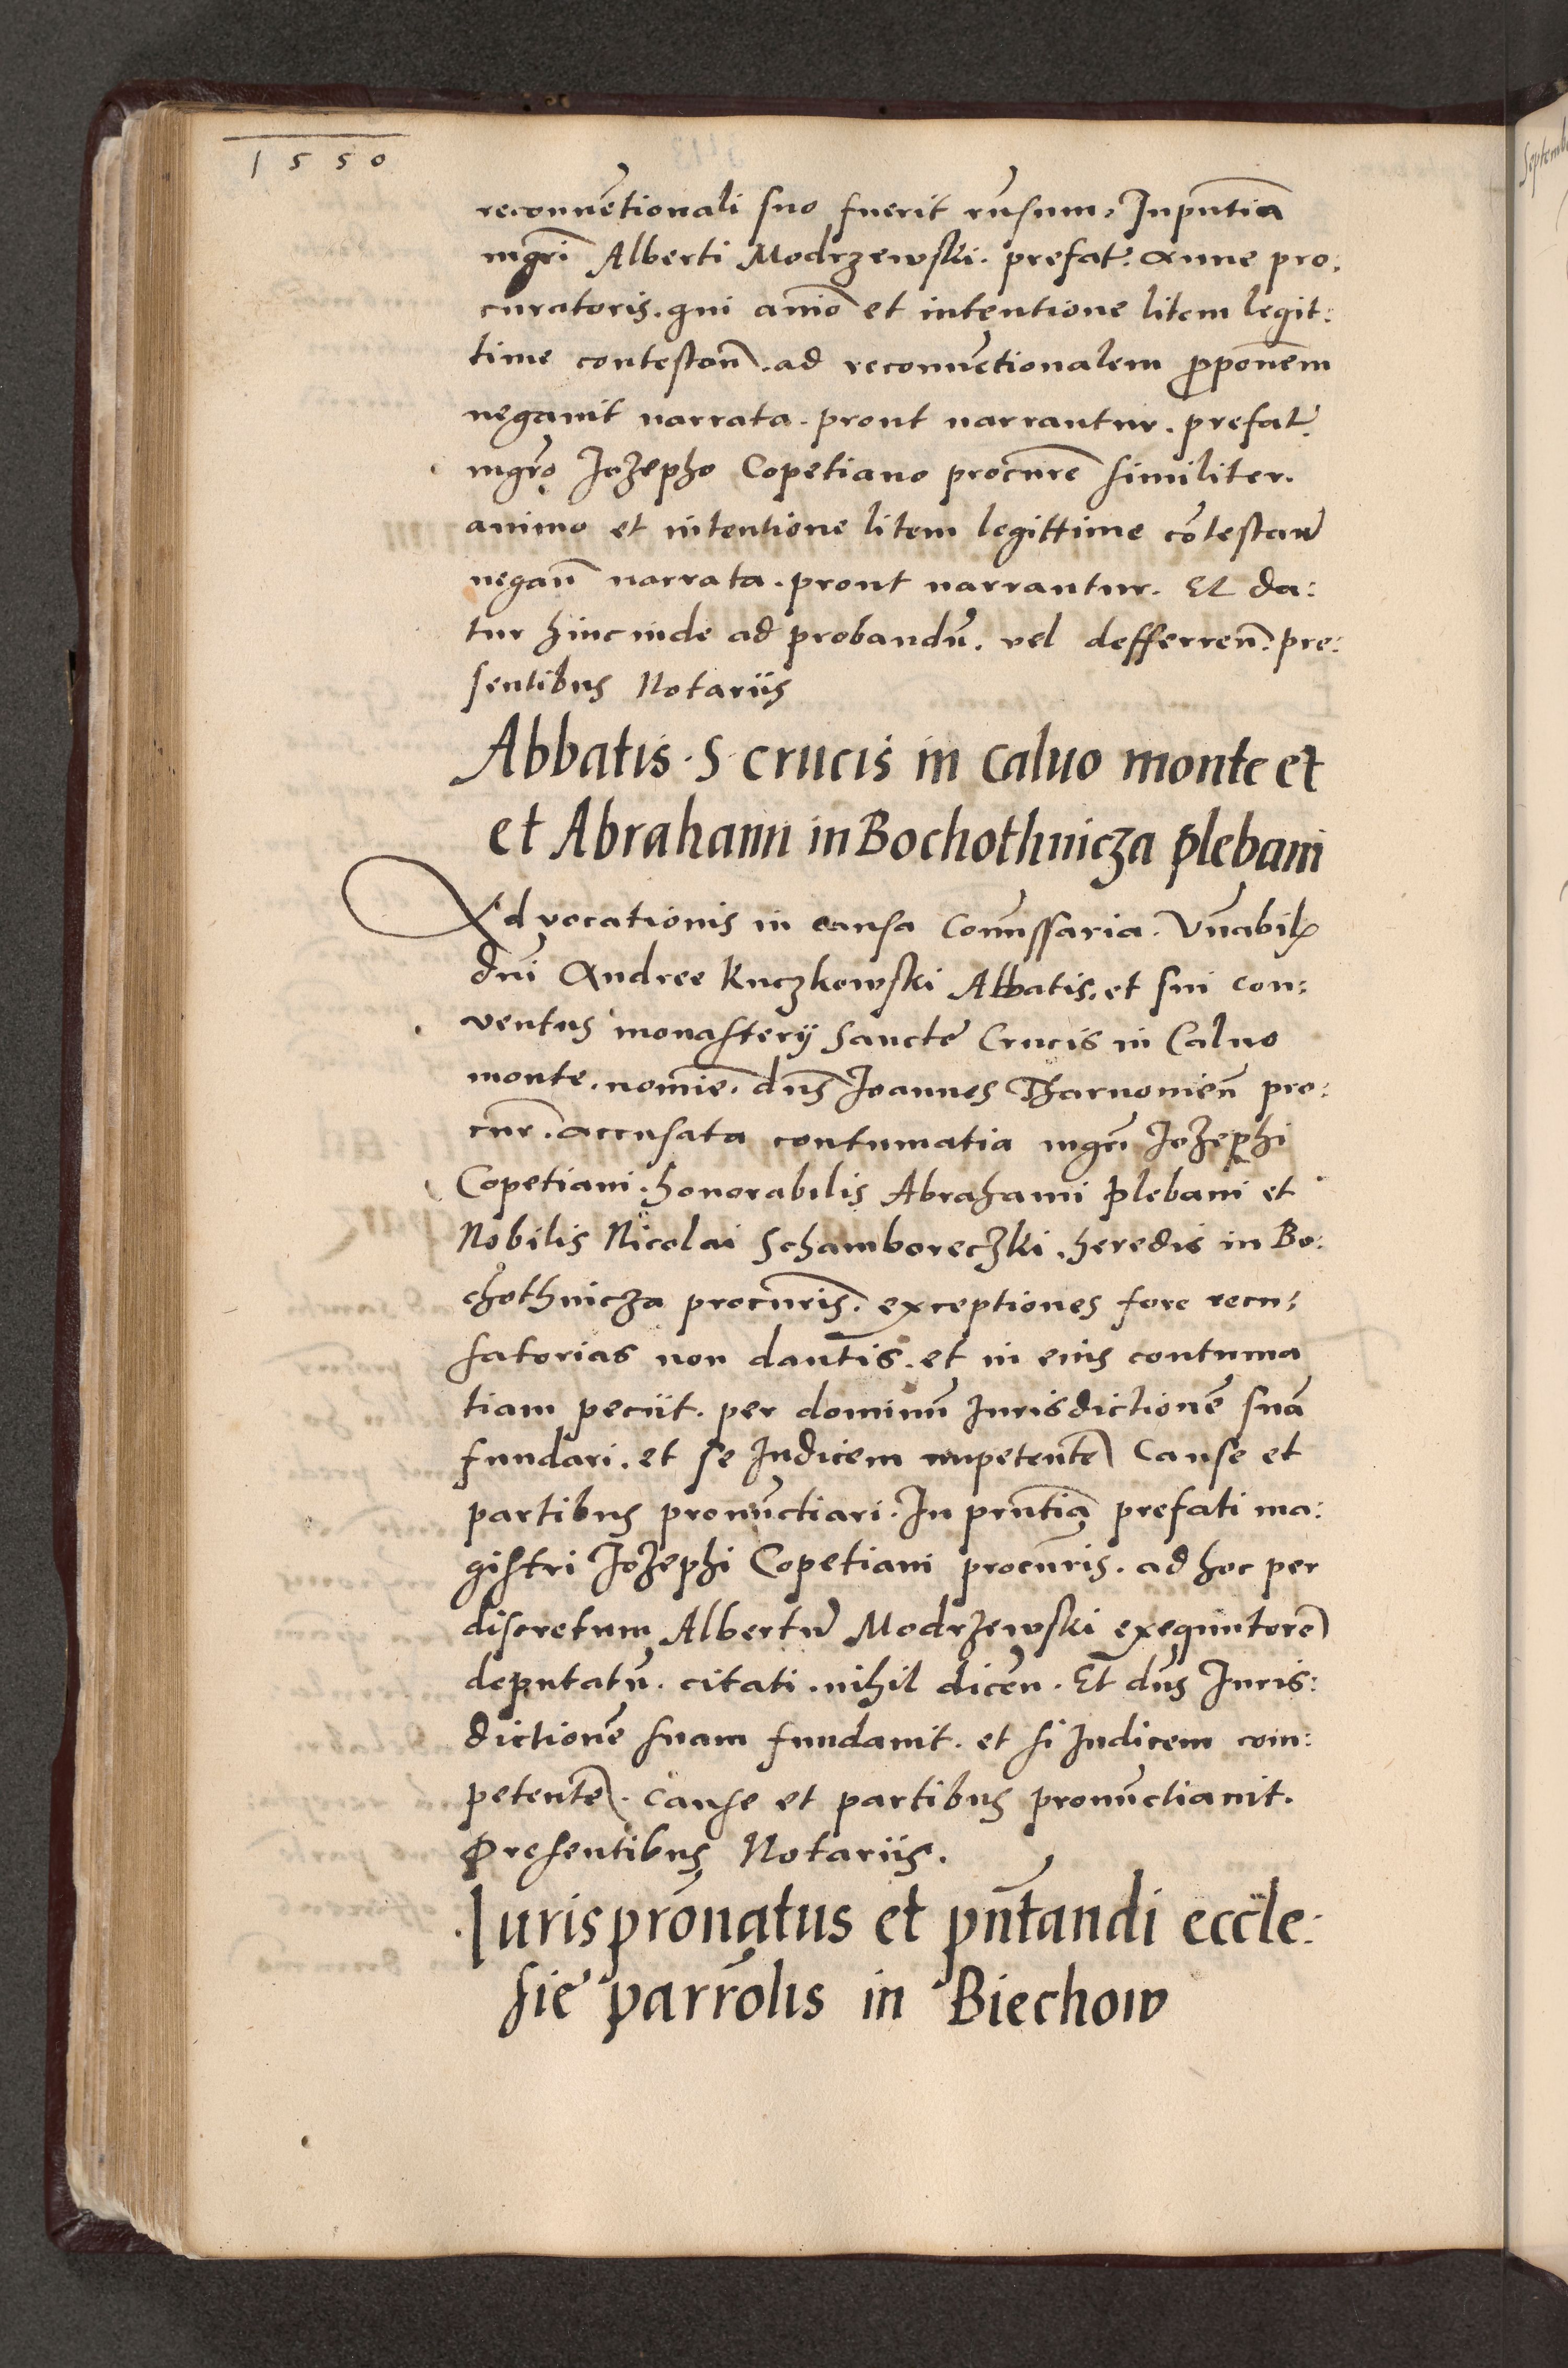 1550
reconuẽtionali suo fuerit rũsum, In pñtia
mgri Alberti Modrzewski. prefat. Anne pro:
curatoris. qui aĩmo et intentione litem legit:
time contestañ. ad reconuẽtionalem ꝓponẽm
negauit narrata. prout narrantur. prefat.
mgro Jozepho Copetiano procurẽ similiter.
animo et intentione litem legittime cõtestañ
negañ narrata. prout narrantur. Et da:
tur hinc inde ad probandũ. vel defferreñ: pre:
sentibus Notariis
Abbatis S crucis in caluo monte et
et Abrahami in Bochothnicza plebani
Ad vocationis in causa Comissaria. Vñabilꝭ
dñi Andree Kuczkowski Abbatis. et sui con:
ventus monastery Sancte Crucis in Caluo
monte. nomie. dñs Joannes Tharnomieñ pro:
cur. accusata contumatia mgri Jozephi
Copetiani. honorabilis Abrahami plebani et
Nobilis Nicolai Schamboreczki. heredis in Bo:
chothnicza procuris. exceptiones fore recu:
satorias non dantis. et in eius contuma
tiam peciit. per dominũ Jurisdictionẽ suã
fundari. et se Judicem competentẽ Cause et
partibus pronũctiari. In pñtia prefati ma:
gistri Jozephi Copetiani procuris. ad hoc per
discretum Albertũ Modrzewski exequutorẽ
deputatũ. citati. nihil dicẽn. Et dñs Juris:
dictionẽ suam fundauit. et si Judicem com:
petentẽ. cause et partibus pronũctiauit.
Presentibus Notariis.
Juris prõnatus et pñtandi eccle:
sie parrõlis in Biechow
Septemb